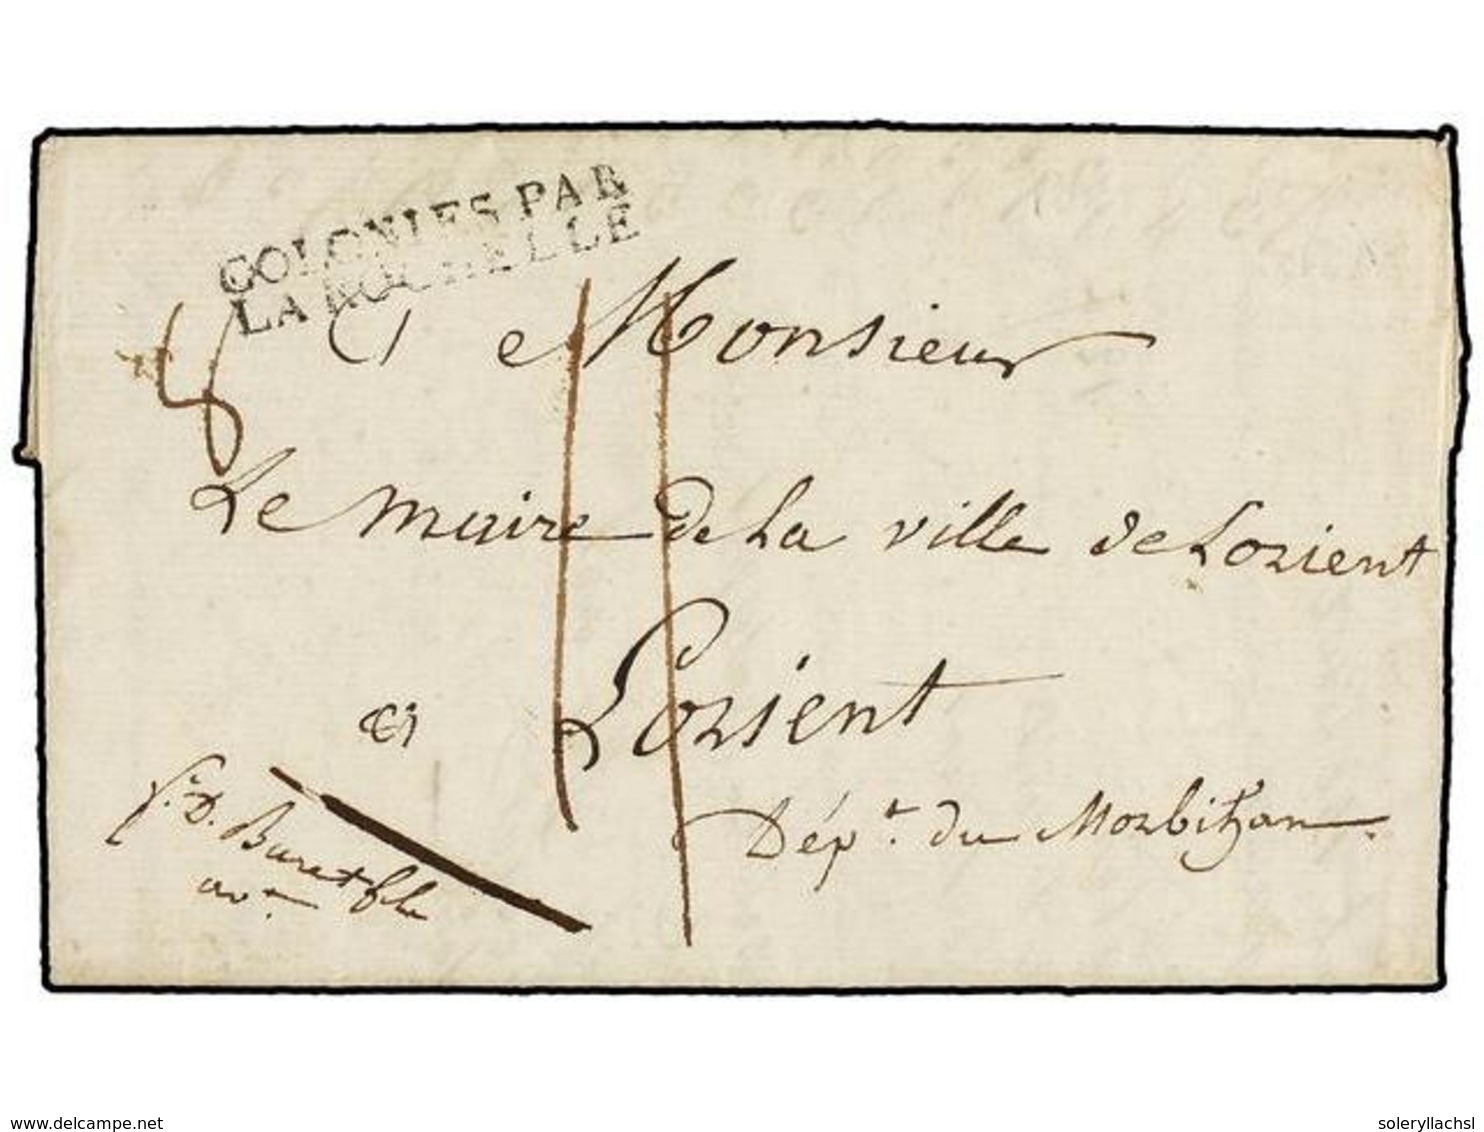 COLONIES PAR
LA ROCHELLE
A Monsieur
Le Maire de la ville de Lorient
Lorient
Dépt. du Morbihan.
p. D. Buret
11
delcampe.net
soleryllachsl